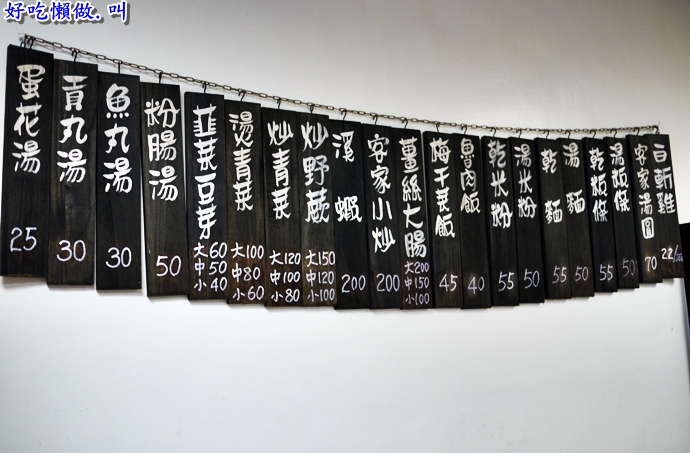 好吃懶做.叫
蛋花湯 25
貢丸湯 30
魚丸湯 30
粉腸湯 50
韭菜豆芽 大60 中50 小40
燙青菜 大100 中80 小60
炒青菜 大120 中100 小80
炒野蕨 大150 中120 小100
溪蝦 200
客家小炒 200
薑絲大腸 大200 中150 小100
梅干菜飯 45
魯肉飯 40
乾米粉 55
湯米粉 50
乾麵 55
湯麵 50
乾粄條 55
湯粄條 50
客家湯圓 70
白斬雞